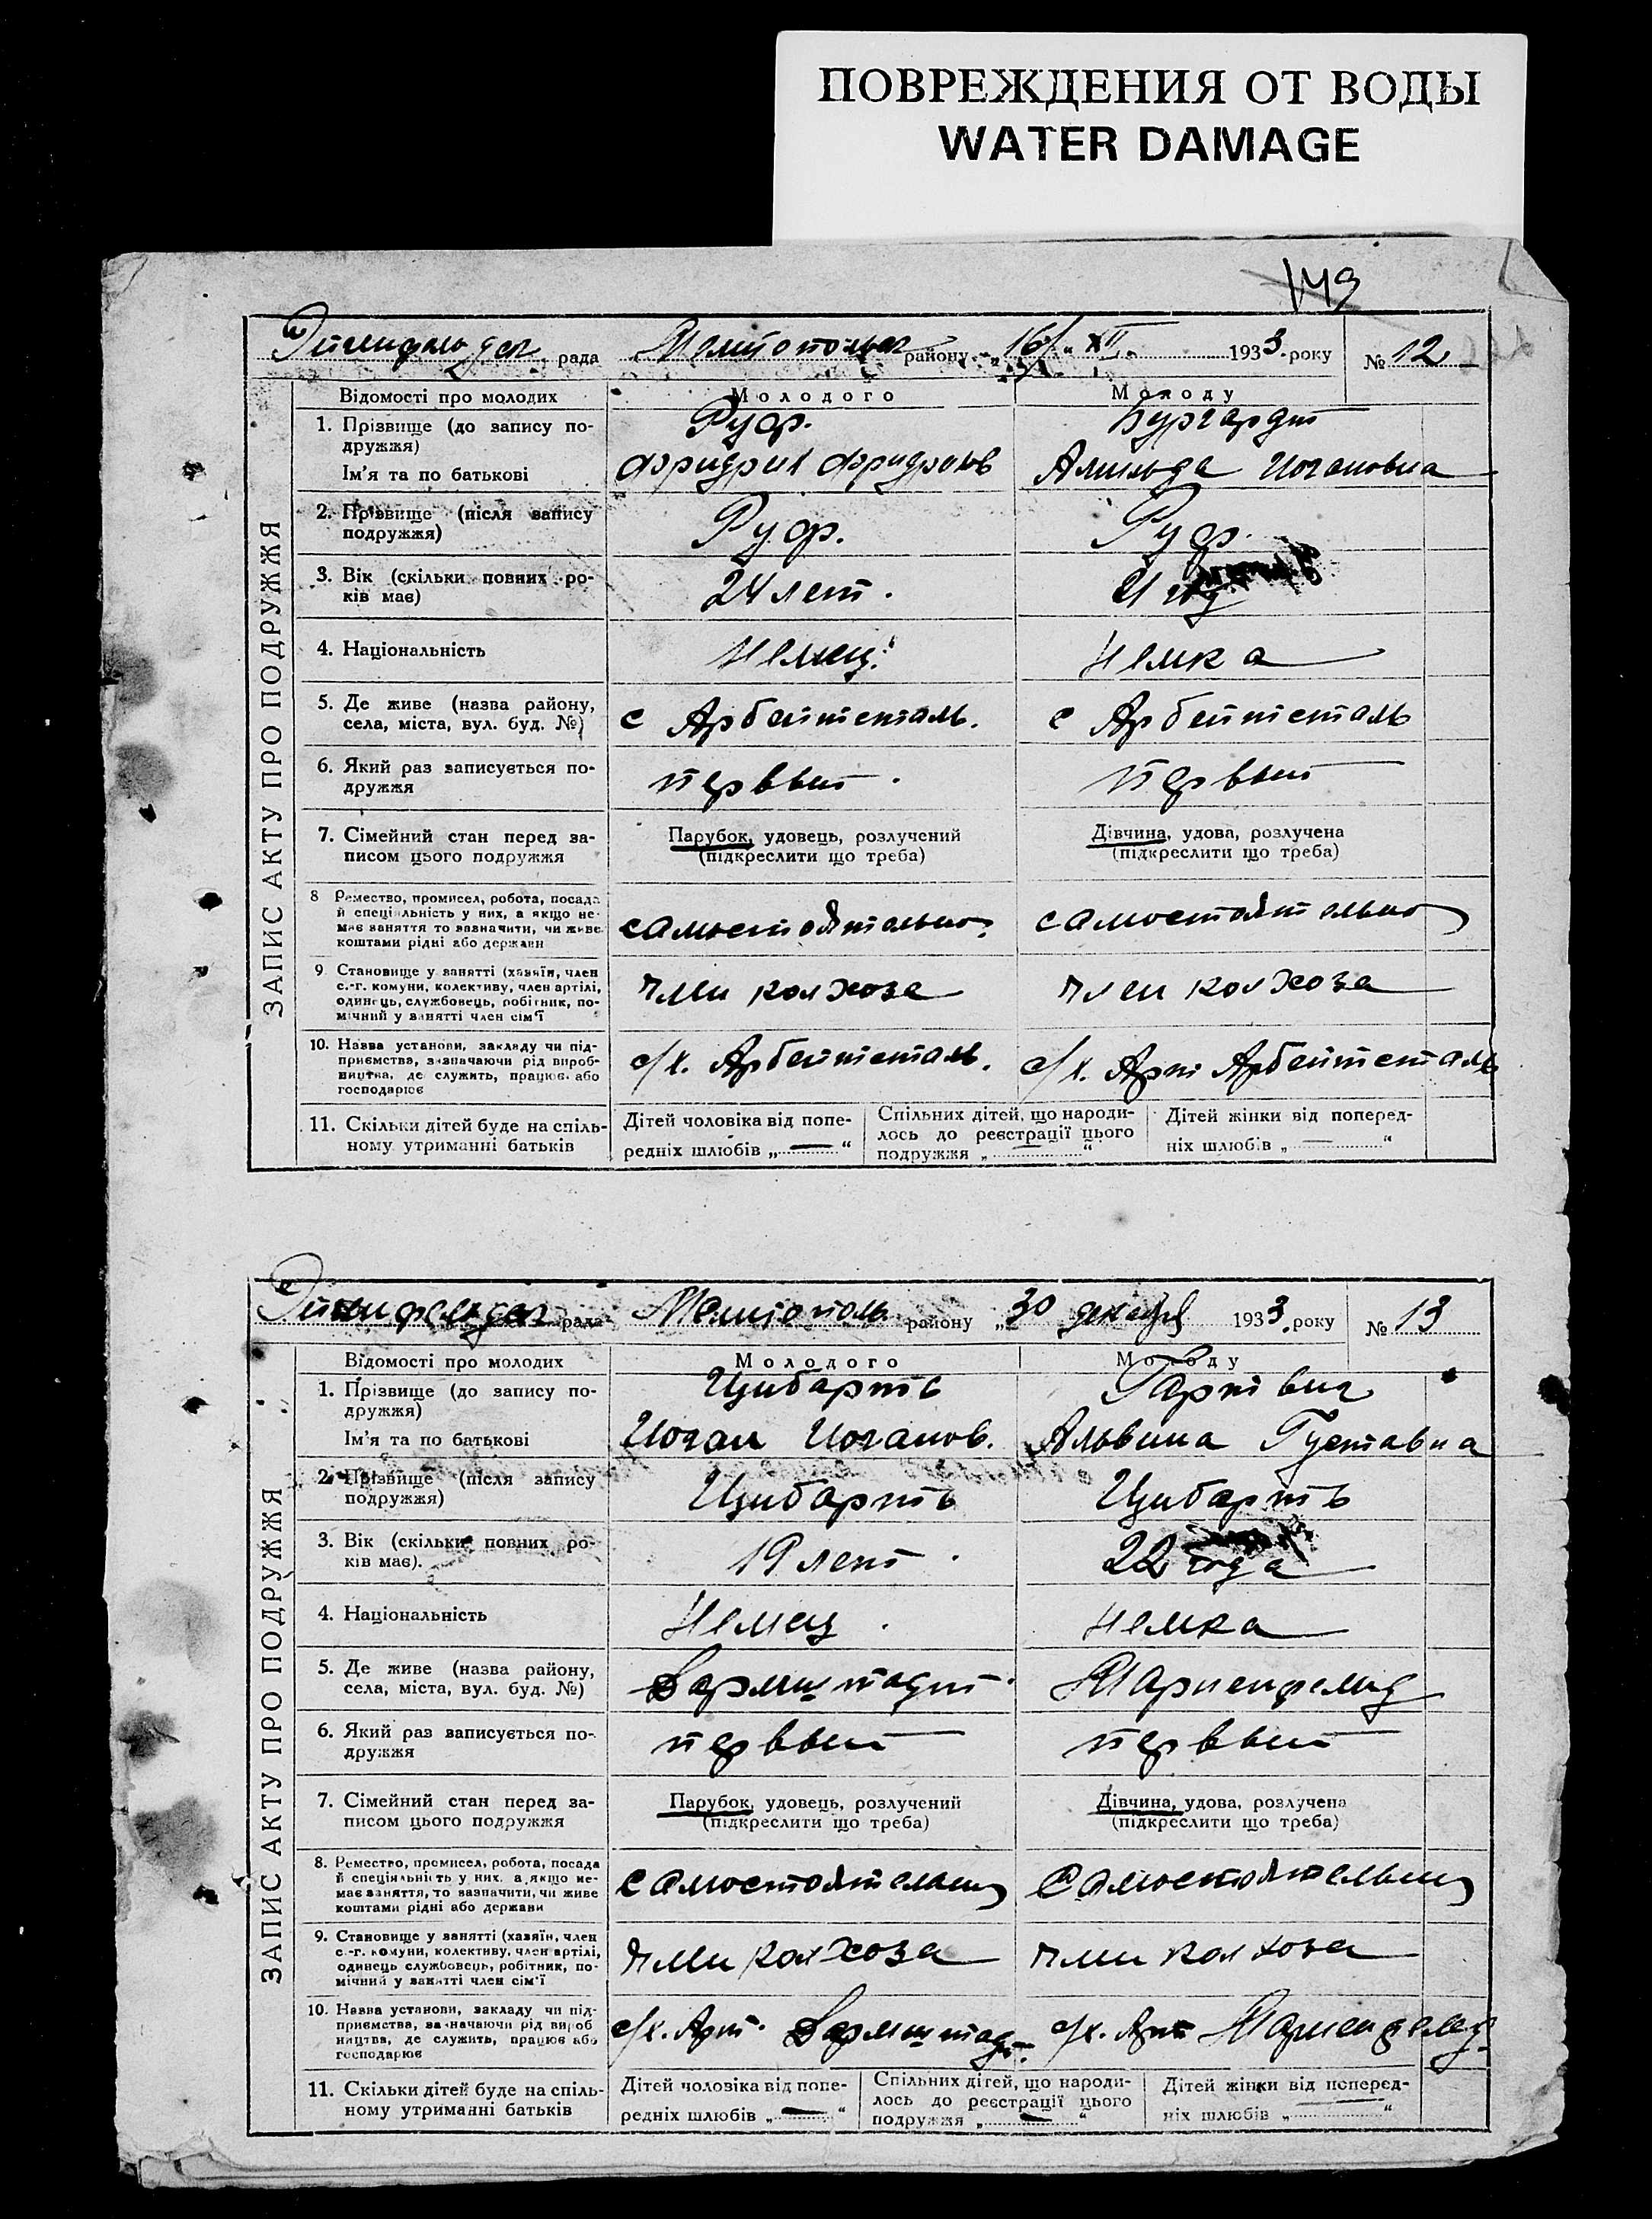 ПОВРЕЖДЕНИЯ ОТ ВОДЫ
WATER DAMAGE
149
рада района „16/“ XII 1933 року № 12
ЗАПИС АКТУ ПРО ПОДРУЖЖЯ
Відомості про молодих Молодого Молоду
1. Прізвище (до запису по-
дружжя) Руф. Бургардт
Ім'я та по батькові Фридрих Фридрихов Амильда Иогановна
2. Прізвище (після запису
подружжя) Руф. Руф.
3. Вік (скільки повних ро-
ків має) 24 лет. 21 год
4. Національність Немец. Немка
5. Де живе (назва району,
села, міста, вул. буд. №) с Арбейтсталь. с Арбейтсталь
6. Який раз записується по-
дружжя первый первый
7. Сімейний стан перед за-
писом цього подружжя
Парубок, удовець, розлучений
(підкреслити що треба)
Дівчина, удова, розлучена
(підкреслити що треба)
8 Ремество, промисел, робота, посада
й спеціяльність у них, а якщо не-
має заняття то зазначити, чи живе
коштами рідні або держави
самостоятельно самостоятельно
9 Становище у занятті (хазяїн, член
с.-г. комуни, колективу, член артілі,
одинець, службовець, робітник, по-
мічний у занятті член сім'ї
член колхоза член колхоза
10. Назва установи, закладу чи під-
приємства, зазначаючи рід вироб-
ництва, де служить, працює або
господарює
с/х. Арбейтсталь. с/х. Арт Арбейтсталь
11. Скільки дітей буде на спіль-
ному утриманні батьків
Дітей чоловіка від попе-
редніх шлюбів „—“
Спільних дітей, що народи-
лось до реєстрації цього
подружжя „—“
Дітей жінки від поперед-
ніх шлюбів „—“
рада Мелитополь району „30 декабря 1933 року № 13
ЗАПИС АКТУ ПРО ПОДРУЖЖЯ
Відомості про молодих Молодого Молоду
1. Прізвище (до запису по-
дружжя) Цибартъ Гартвиг
Ім'я та по батькові Иоган Иоганов. Альвина Густавна
2. Прізвище (після запису
подружжя) Цибартъ Цибартъ
3. Вік (скільки повних ро-
ків має). 19 лет. 22 года
4. Національність Немец. Немка
5. Де живе (назва району,
села, міста, вул. буд. №) Дармштадт. Мариенфельд
6. Який раз записується по-
дружжя первый первый
7. Сімейний стан перед за-
писом цього подружжя
Парубок, удовець, розлучений
(підкреслити що треба)
Дівчина, удова, розлучена
(підкреслити що треба)
8. Ремество, промисел, робота, посада
й спеціяльність у них, а якщо не-
має заняття, то зазначити, чи живе
коштами рідні або держави
самостоятельно самостоятельно
9. Становище у занятті (хазяїн, член
с.-г. комуни, колективу, член артілі,
одинець службовець, робітник, по-
мічний у занятті член сім'ї
член колхоза член колхоза
10. Назва установи, закладу чи під-
приємства, зазначаючи рід вироб
ництва, де служить, працює або
господарює
с/х. Арт. Дармштадт. с/х. Арт Мариенфельд.
11. Скільки дітей буде на спіль-
ному утриманні батьків
Дітей чоловіка від попе-
редніх шлюбів „—“
Спільних дітей, що народи-
лось до реєстрації цього
подружжя „—“
Дітей жінки від поперед-
ніх шлюбів „—“